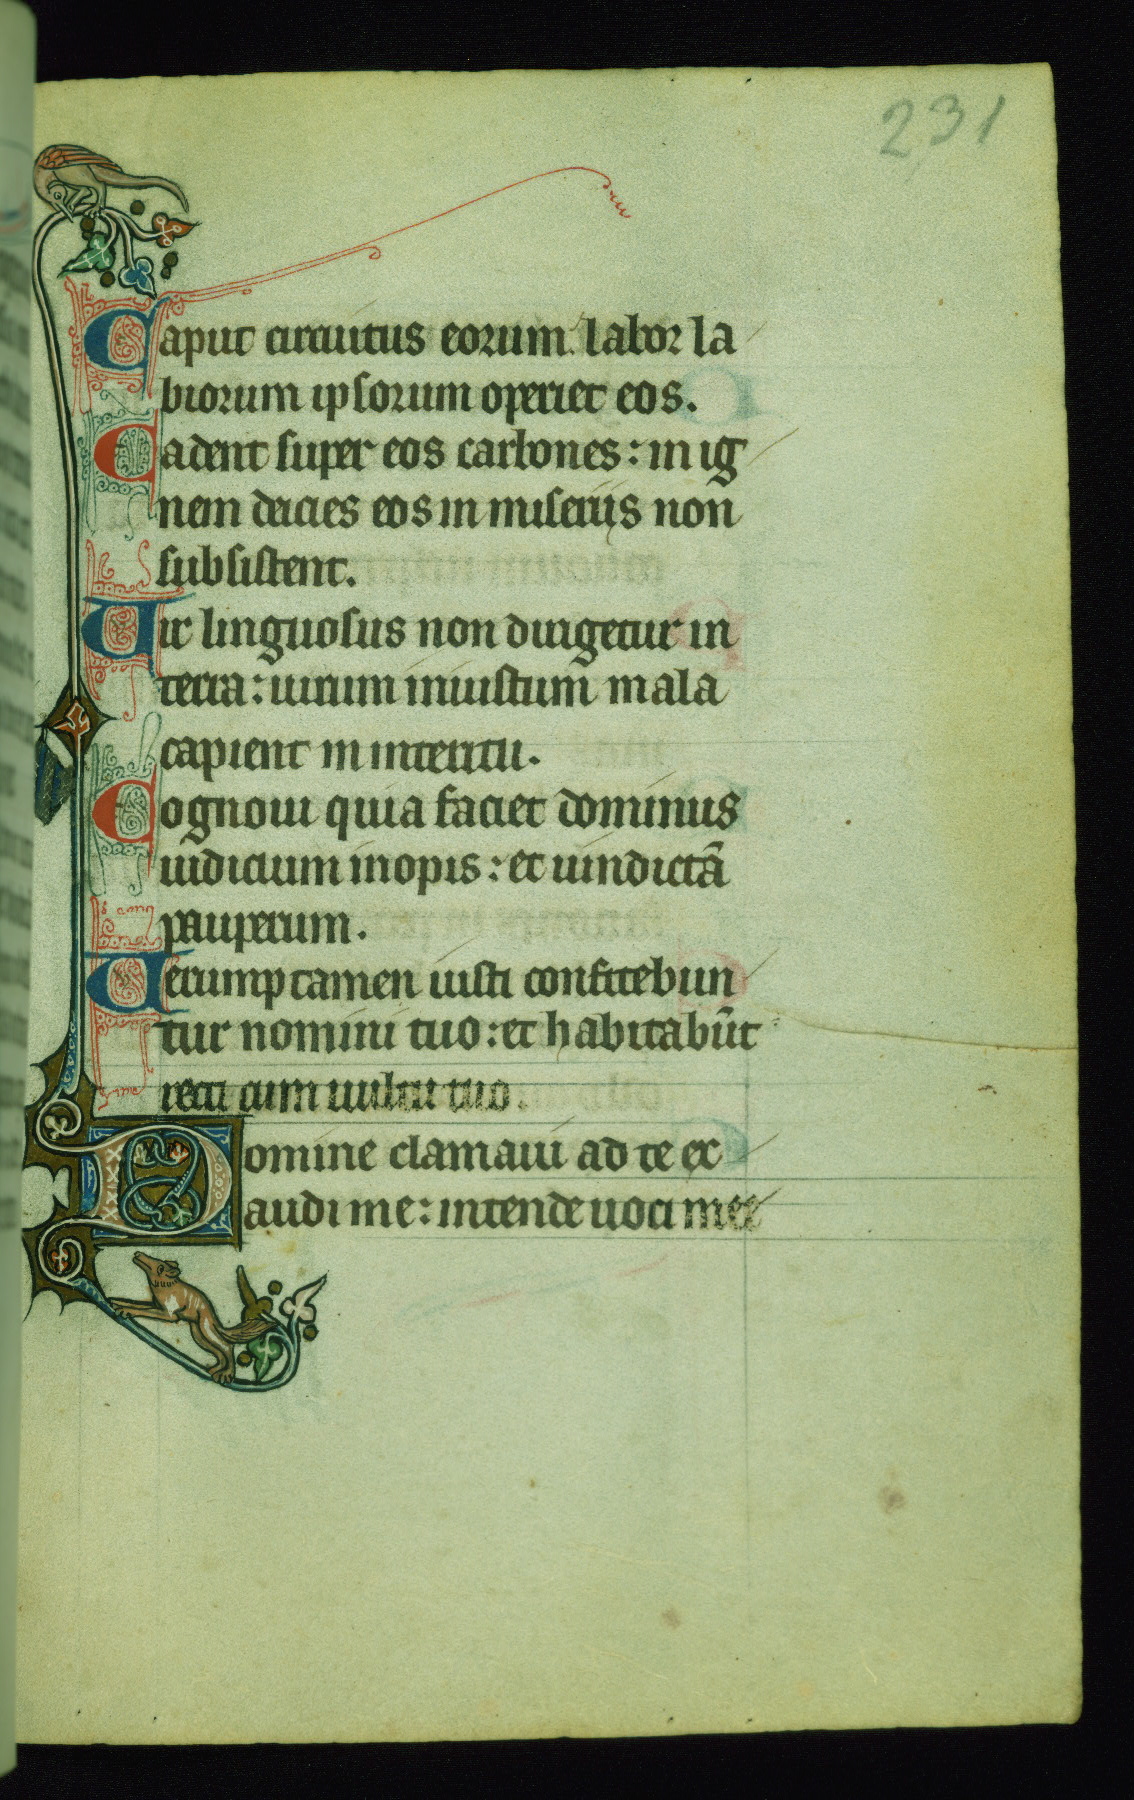 231
Caput circuitus eorum. labor la
biorum ipsorum operiet eos.
Cadent super eos carbones: in ig
nem deicies eos in miseriis non
subsistent.
Uir linguosus non dirigetur in
terra: uirum iniustum mala
capient in interitu.
Cognoui quia faciet dominus
iudicium inopis: et uindictā
pauperum.
Uerumptamen iusti confitebun
tur nomini tuo: et habitabūt
recti cum uultu tuo.
Domine clamaui ad te ex
audi me: intende uoci mee